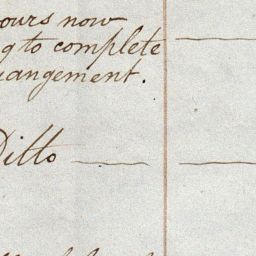 ours now
g to complete
rangement.
Ditto